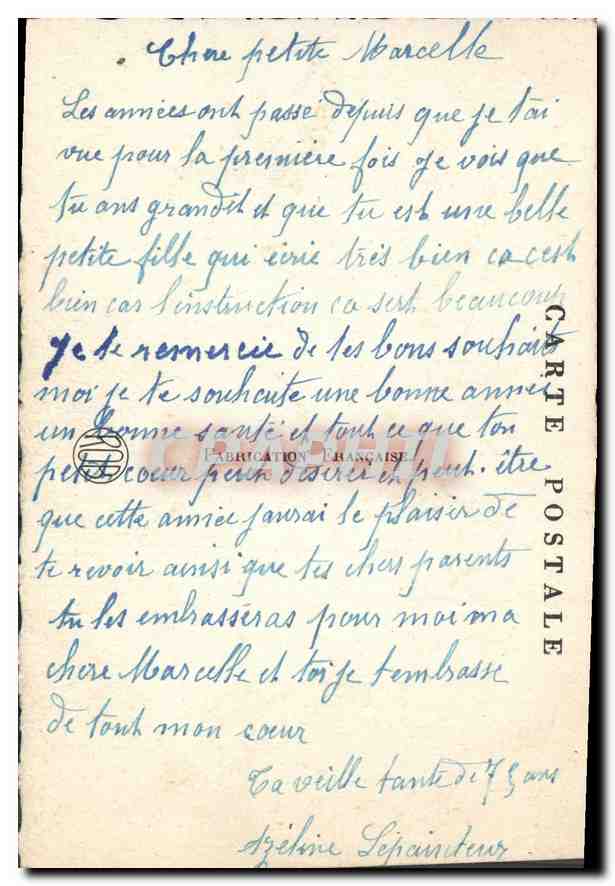 Chere petite Marcelle
Les années ont passé depuis que je t'ai
vue pour la première fois je vois que
tu ans grandit et que tu est une belle
petite fille qui écrie très bien ca cest
bien car l'instruction ca sert beaucoup
Je te remercie de tes bons souhaits
moi je te souhaite une bonne année
un bonne santé et tout ce que ton
petit coeur peut désirer et peut-être
que cette année jaurai le plaisir de
te revoir ainsi que tes chers parents
tu les embrasséras pour moi ma
chere Marcelle et toi je t'embrasse
de tout mon coeur
Ta veille tante de 75 ans
Azéline Lepainteur
CARTE POSTALE
FABRICATION FRANÇAISE